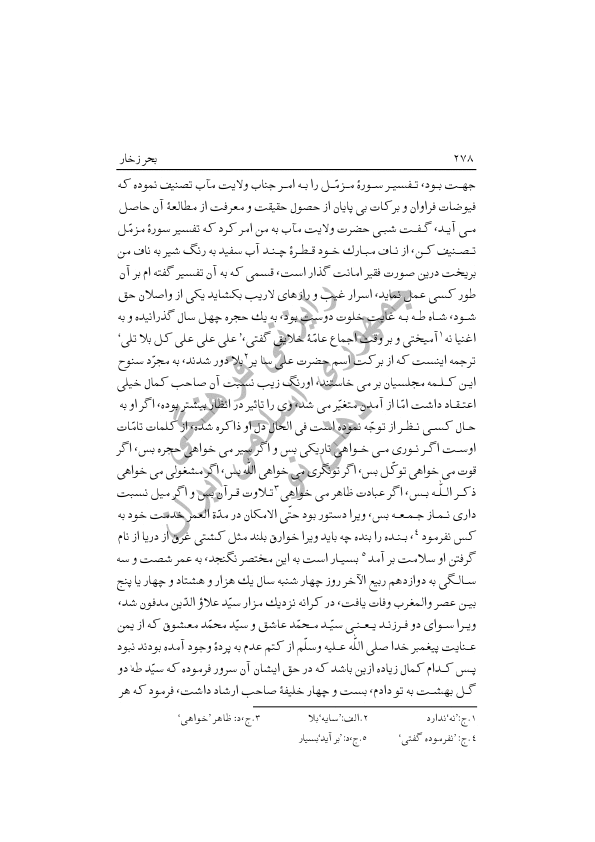 ٢٧٨ بحر زخار
جهت بود، تفسیر سورۀ مزمّل را به امر جناب ولایت مآب تصنیف نموده که
فیوضات فراوان و برکات بی پایان از حصول حقیقت و معرفت از مطالعۀ آن حاصل
می آید، گفت شبی حضرت ولایت مآب به من امر کرد که تفسیر سورۀ مزمّل
تصنیف کن، از ناف مبارك خود قطرۀ چند آب سفید به رنگ شیر به ناف من
بریخت درین صورت فقیر امانت گذار است، قسمی که به آن تفسیر گفته ام بر آن
طور کسی عمل نماید، اسرار غیب و رازهای لاریب بکشاید یکی از واصلان حق
شود، شاه طه به غایت خلوت دوست بود، به یك حجره چهل سال گذرانیده و به
اغنیا نه ١ آمیختی و بر وقت اجماع عامّۀ خلایق گفتی، ’علی علی علی کل بلا تلی‘
ترجمه اینست که از برکت اسم حضرت علی سا بر ٢ بلا دور شدند، به مجرّد سنوح
این کلمه مجلسیان بر می خاستند، اورنگ زیب نسبت آن صاحب کمال خیلی
اعتقاد داشت امّا از آمدن متغیّر می شد، وی را تاثیر در انظار بیشتر بوده، اگر او به
حال کسی نظر از توجّه نموده است فی الحال دل او ذاکره شده، از کلمات تامّات
اوست اگر نوری می خواهی تاریکی بس و اگر سیر می خواهی حجره بس، اگر
قوت می خواهی توکّل بس، اگر تونگری می خواهی اللّٰه بس، اگر مشغولی می خواهی
ذکر اللّٰه بس، اگر عبادت ظاهر می خواهی ٣ تلاوت قرآن بس و اگر میل نسبت
داری نماز جمعه بس، ویرا دستور بود حتّی الامکان در مدّة العمر خدمت خود به
کس نفرمود ٤، بنده را بنده چه باید ویرا خوارق بلند مثل کشتی غرق از دریا از نام
گرفتن او سلامت بر آمد ٥ بسیار است به این مختصر نگنجد، به عمر شصت و سه
سالگی به دوازدهم ربیع الآخر روز چهار شنبه سال یك هزار و هشتاد و چهار یا پنج
بین عصر والمغرب وفات یافت، در کرانه نزدیك مزار سیّد علاؤ الدّین مدفون شد،
ویرا سوای دو فرزند یعنی سیّد محمّد عاشق و سیّد محمّد معشوق که از یمن
عنایت پیغمبر خدا صلی اللّٰه علیه وسلّم از کتم عدم به پردۀ وجود آمده بودند نبود
پس کدام کمال زیاده ازین باشد که در حق ایشان آن سرور فرموده که سیّد طه دو
گل بهشت به تو دادم، بست و چهار خلیفۀ صاحب ارشاد داشت، فرمود که هر
١.ج:’نه‘ندارد ٢.الف:’سایه‘بلا ٣.ج،د: ظاهر ’خواهی‘
٤.ج: ’نفرموده گفتی‘ ٥.ج،د:’بر آید‘بسیار